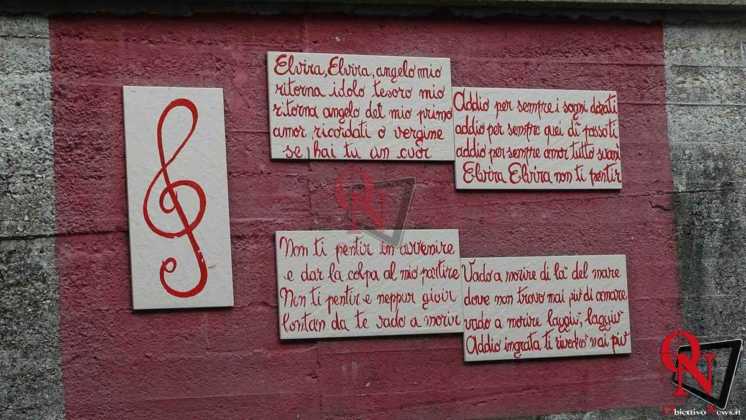 Elvira, Elvira, angelo mio
ritorna idolo tesoro mio
ritorna angelo del mio primo
amor ricordati o vergine
se hai tu un cuor
Addio per sempre i sogni dorati
addio per sempre quei dì passati
addio per sempre amor tutto svanì
Elvira Elvira non ti pentir
Non ti pentir in avvenire
e dar la colpa al mio partire
Non ti pentir e neppur gioir
lontan da te vado a morir
Vado a morire di là del mare
dove non trovo mai più di amare
vado a morire laggiù, laggiù
Addio ingrata ti rivedrò mai più
ON
ON
Obiettivo News.it